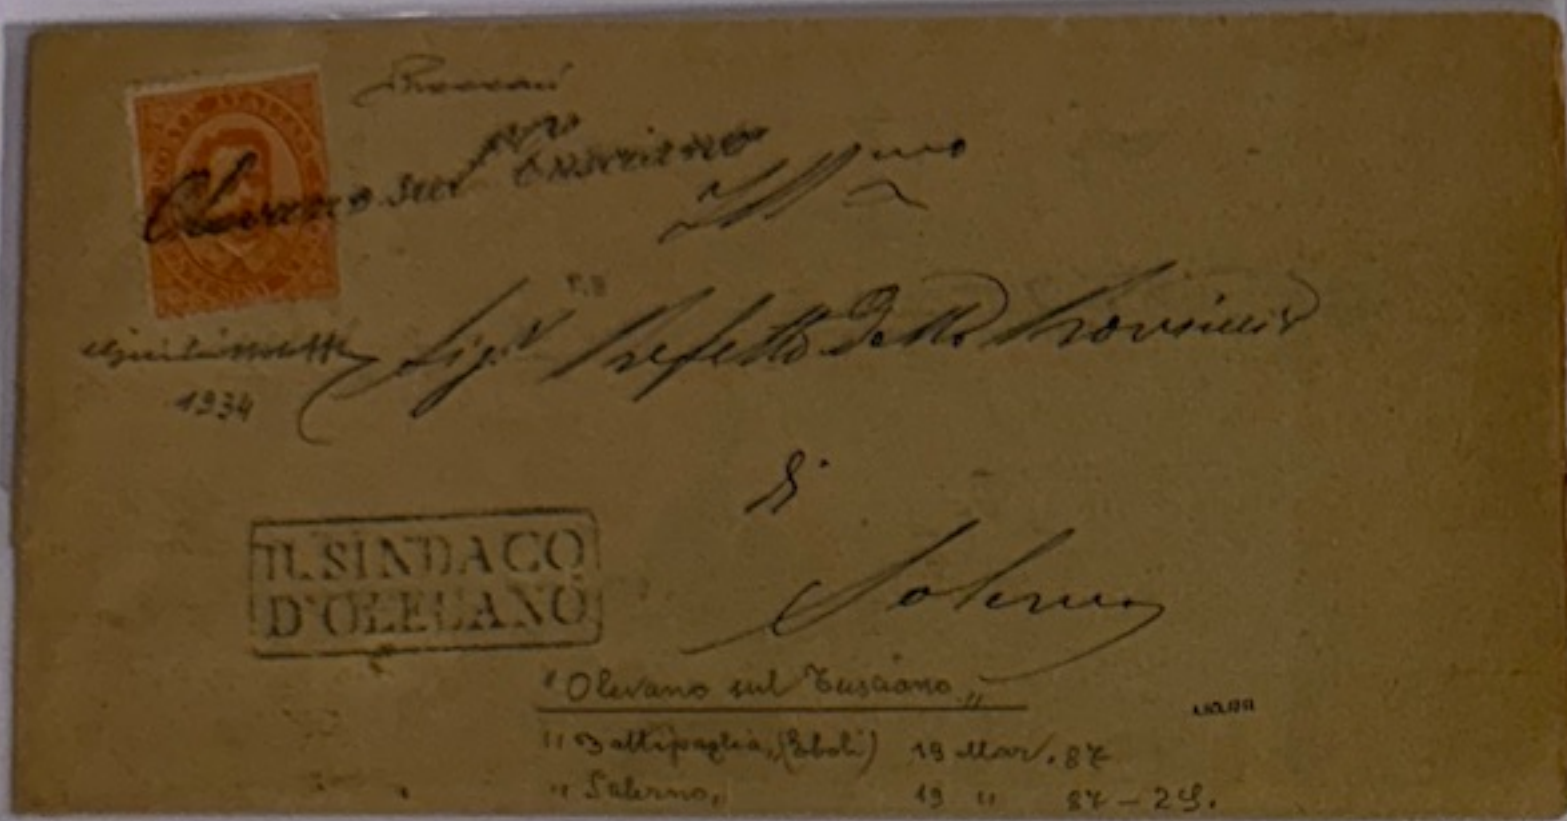 Olevano sul Tusciano
Ill mo
Sig.r Prefetto della Provincia
1934
di
Salerno
IL SINDACO
D'OLEVANO
"Olevano sul Tusciano„
" Battipaglia, (Eboli) 19 Mar. 87
" Salerno, 19 " 87 - 2S.